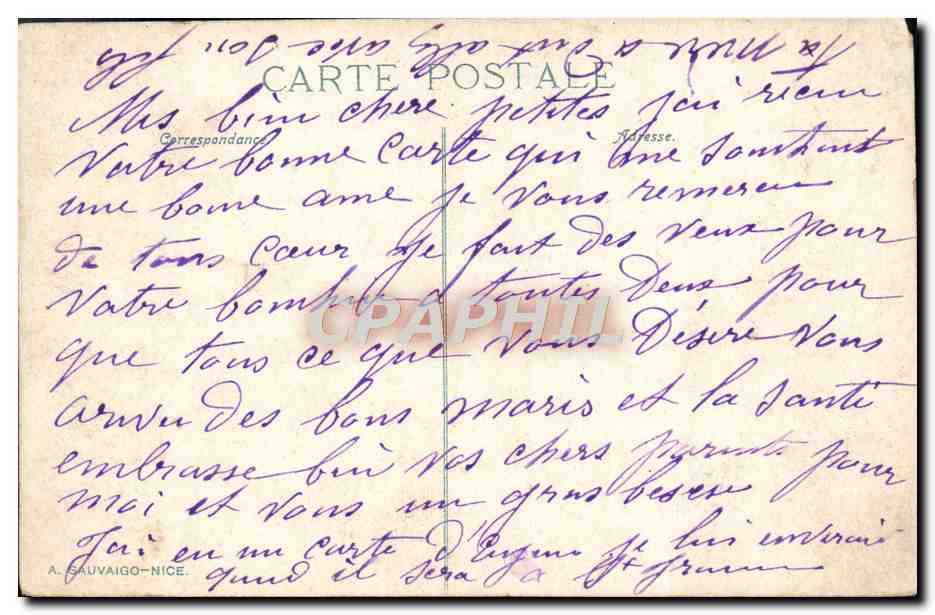 CARTE POSTALE
Correspondance
Adresse.
Mes bien chere petites jai recu
Votre bonne Carte qui me souhait
une bonne ame je vous remerci
de tous cœur je fait des veux pour
Votre bonheur a toutes Deux pour
que tous ce que vous Désire Vous
arrive des bons maris et la Santé
embrasse bin vos chers parents pour
moi et Vous un gros
Jai eu un carte d'Eugene je lui enverai
quand il sera a St
A. SAUVAIGO-NICE.
CPAPHIL